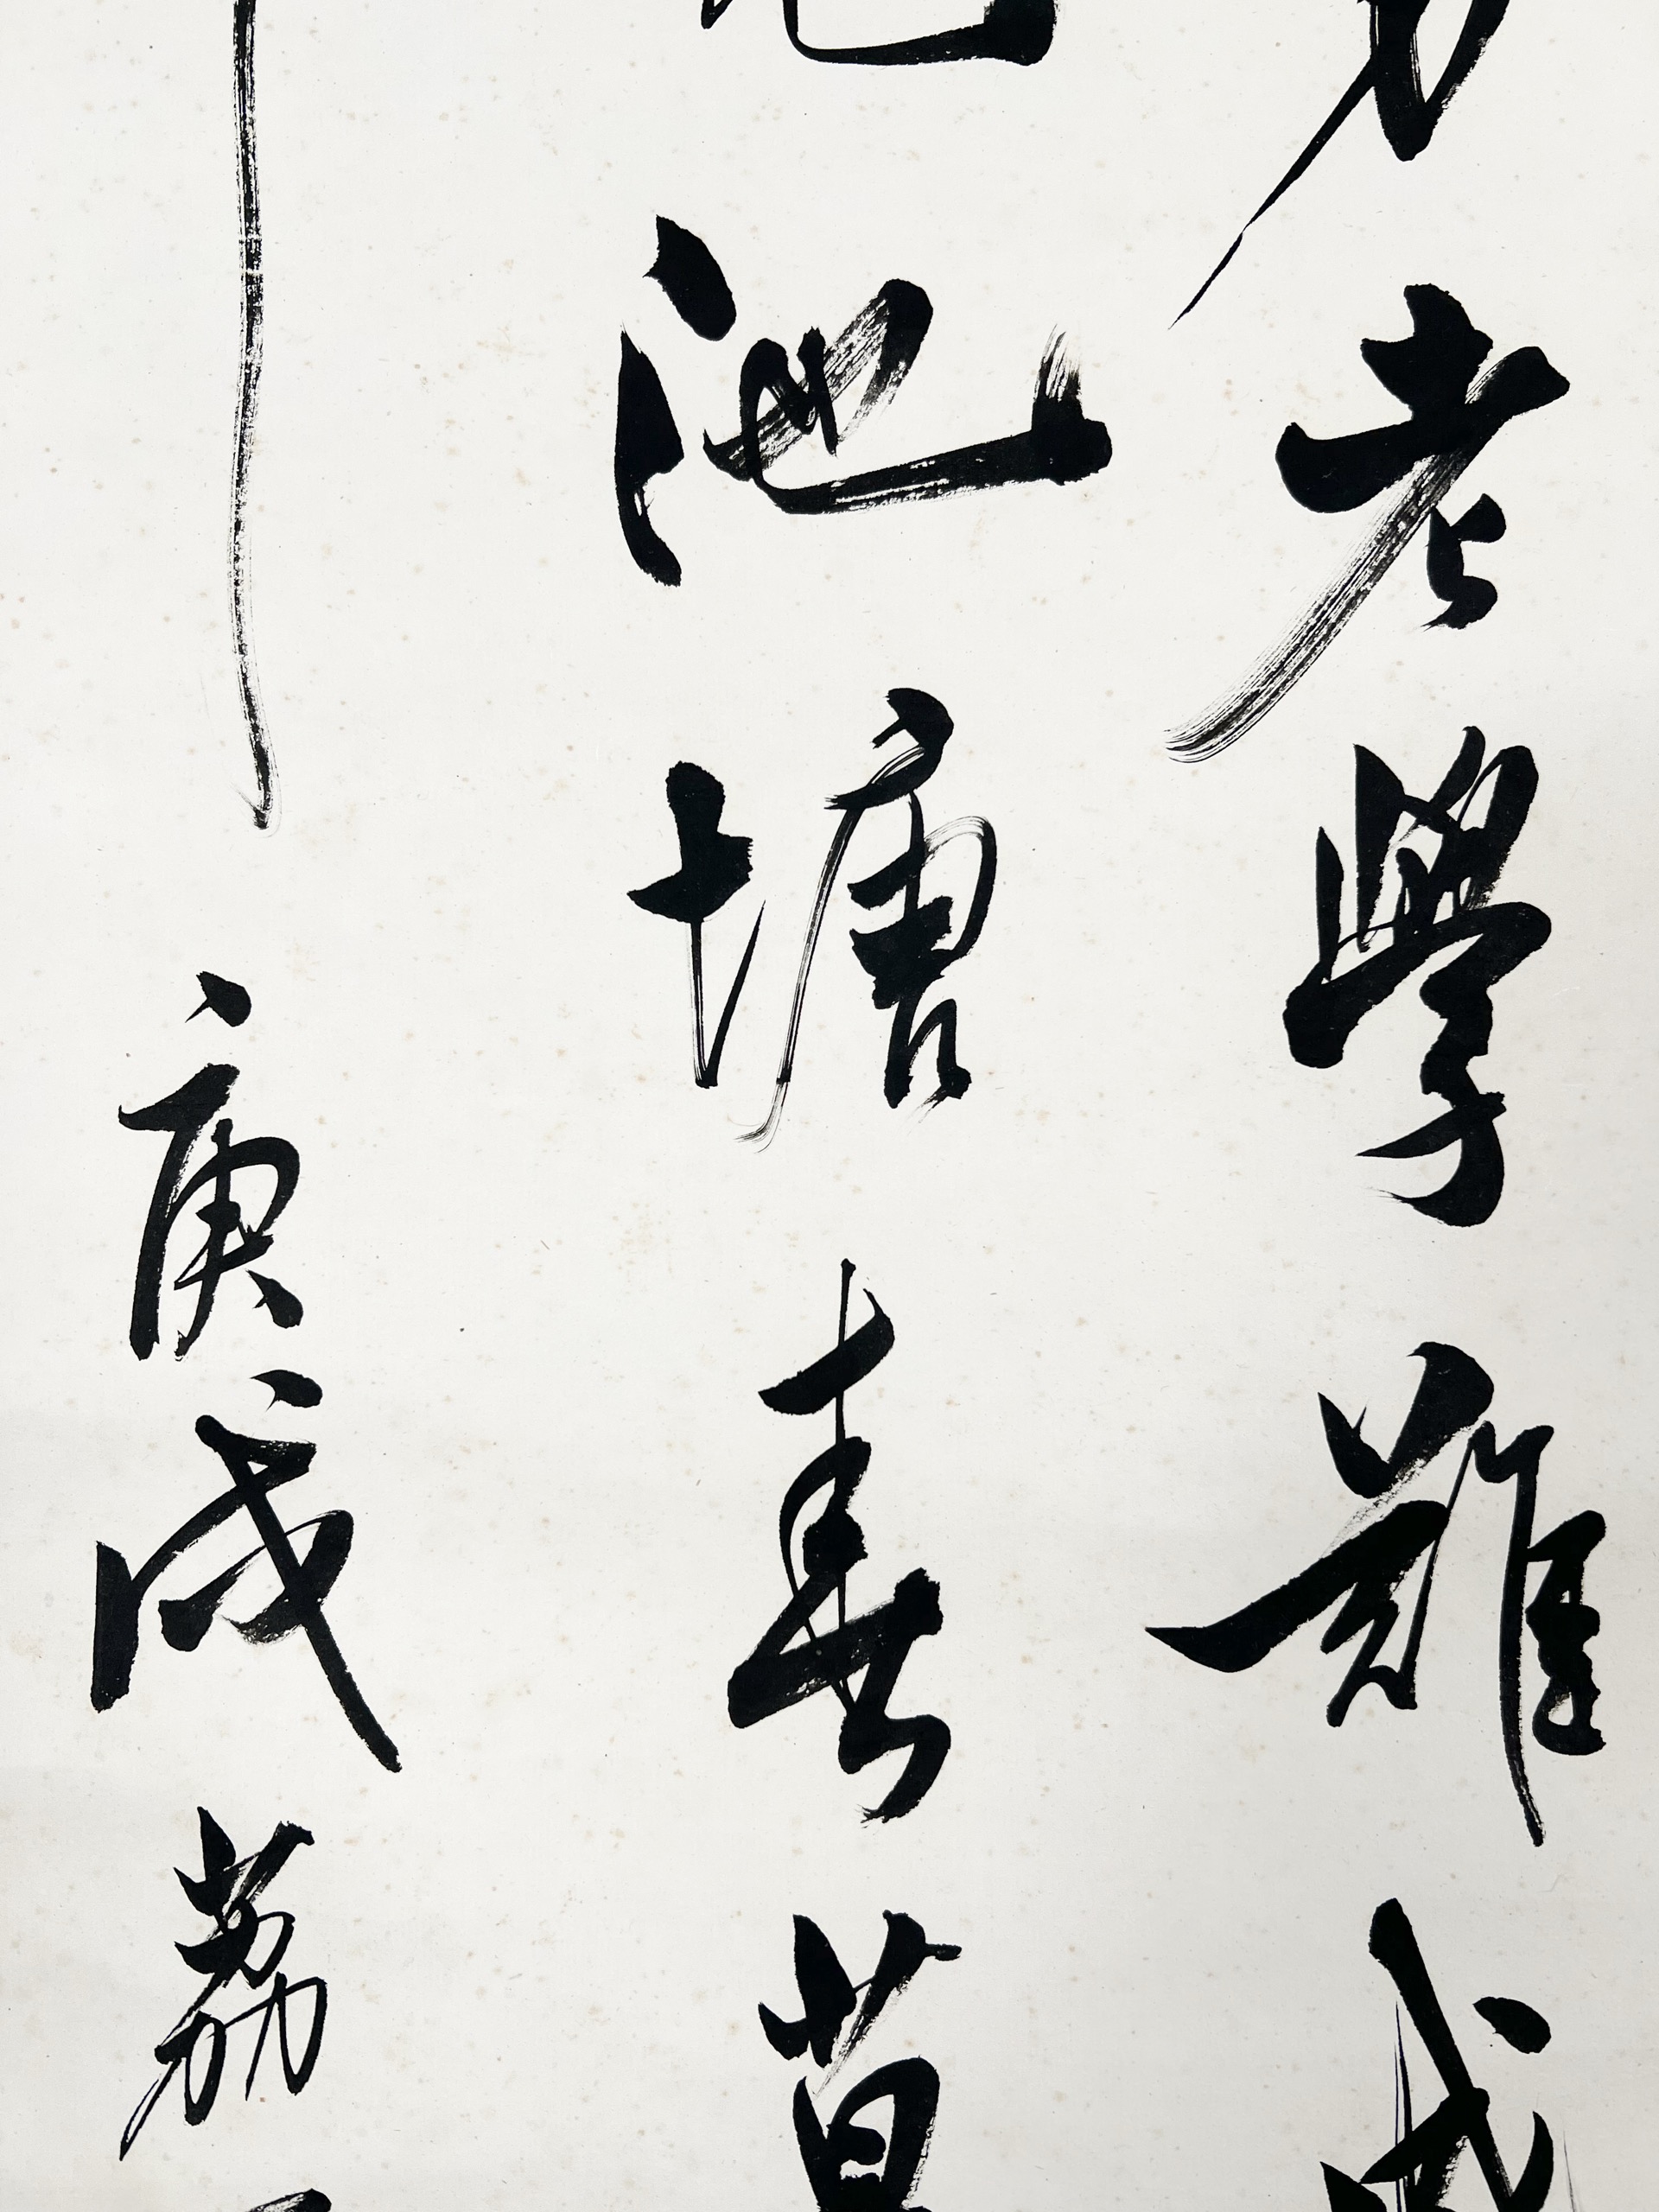 易老學難成
池塘春草
庚戌荔